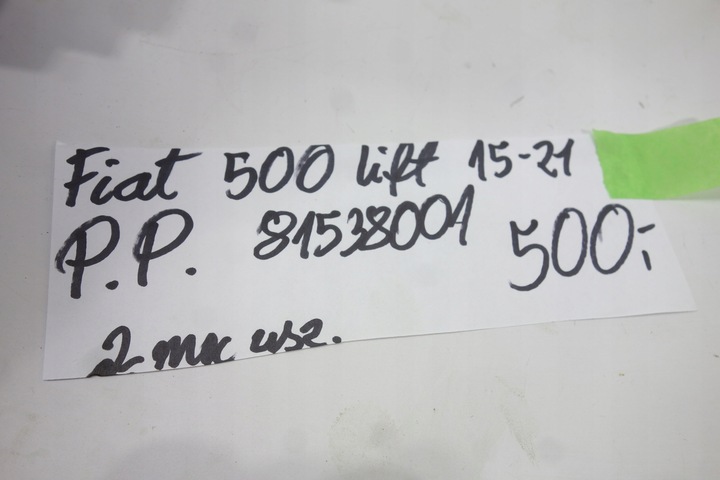 Fiat 500 lift 15-21
P.P. 81538001 500,-
2 moc usz.